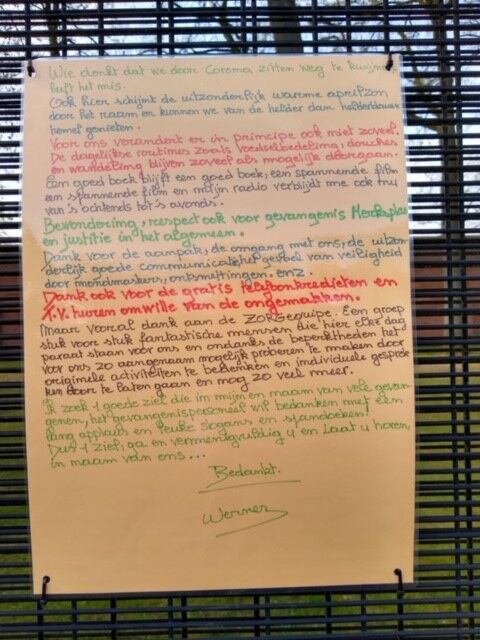 Wie denkt dat we door Corona zitten weg te kwijnen,
heeft het mis.
Ook hier schijnt de uitzonderlijk warme aprilzon
door het raam en kunnen we van de helder dan helderblauwe
hemel genieten.
Voor ons verandert er in principe ook niet zoveel.
De dagelijkse routines zoals voedselbedeling, douches
en wandeling blijven zoveel als mogelijk doorgaan.
Een goed boek blijft een goed boek, een spannende film
een spannende film en mijn radio verblijdt me ook nu
van 's ochtends tot 's avonds.
Bewondering, respect ook voor gevangenis Merksplas
en justitie in het algemeen.
Dank voor de aanpak, de omgang met ons, de uitzon-
derlijk goede communicatie, het gevoel van veiligheid
door mondmaskers, ontsmettingen. enz.
Dank ook voor de gratis telefoonkredieten en
T.V. huren omwille van de ongemakken.
Maar vooral dank aan de ZORGequipe. Een groep
stuk voor stuk fantastische mensen die hier elke dag
paraat staan voor ons en ondanks de beperktheden het
voor ons zo aangenaam mogelijk proberen te maken door
originele activiteiten te bedenken en individuele gesprek
ken door te laten gaan en nog zo veel meer.
Ik zoek 1 goede ziel die in mijn en naam van vele gevan-
genen, het gevangenispersoneel wil bedanken met een
lang applaus en leuke slogans en spandoeken!
Dus 1 ziel, ga en vermenigvuldig u en Laat u horen,
in naam van ons...
Bedankt.
Werner